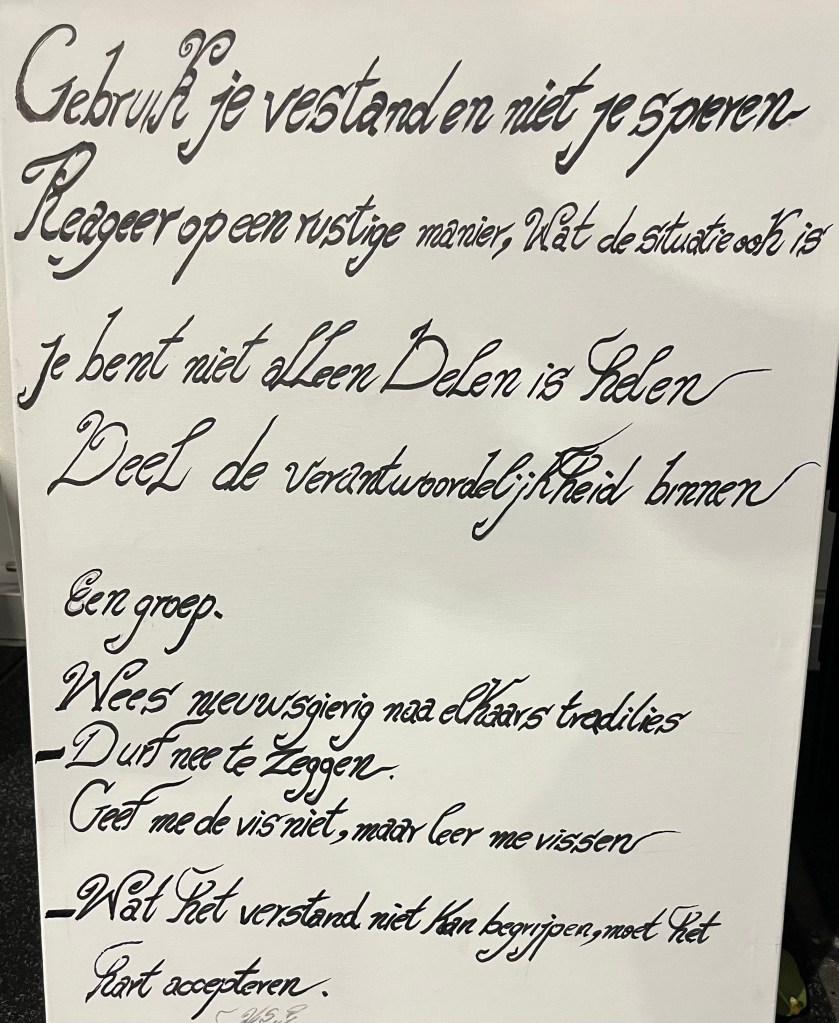 Gebruik je vestand en niet je spieren
Reageer op een rustige manier, Wat de situatie ook is
Je bent niet alleen Delen is helen
Deel de verantwoordelijkheid binnen
Een groep.
Wees nieuwsgierig naa elkaars tradities
- Durf nee te zeggen.
Geef me de vis niet, maar leer me vissen
- Wat het verstand niet kan begrijpen, moet het
hart accepteren.